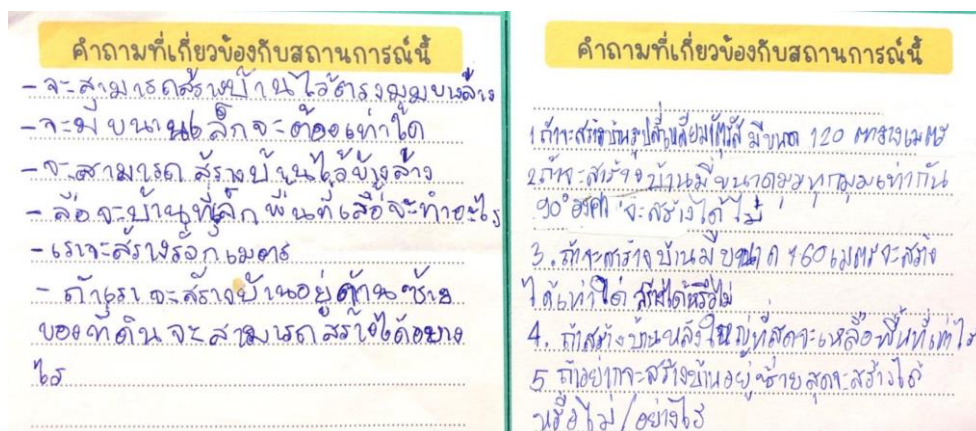 คำถามที่เกี่ยวข้องกับสถานการณ์นี้
- จะสามารถสร้างบ้านไว้ตรงมุมบนล้าง
- จะมีขนานเล็กจะต้องเท่าใด
- จะสามารถ สร้างบ้านไว้ข้างล้าง
- ลือจะบ้านที่เล็ก พื้นที่เสือจะทำอะไร
- เราจะสร้างรั้วกเมตร
- ถ้าเราจะสรางบ้านอยู่ด้านซ้าย
ของที่ดินจะสามารถสร้างได้อยาง
ไร
คำถามที่เกี่ยวข้องกับสถานการณ์นี้
1 ถ้าจะสร้างบ้านรูปสี่เหลี่ยมจัตุรัส มีขนาด 120 ตารางเมตร
2. ถ้าจะสร้างบ้านมีขนาดมุมทุกมุมเท่ากัน
90° องศา จะสร้างได้ไม่
3. ถ้าจะสร้างบ้านมีขนาด 160 เมตร จะสร้าง
ได้เท่าใด่ สร้างได้หรือไม่
4. ถ้าสร้างบ้านหลังใหญ่ที่สุดจะเหลือพื้นที่เท่าไร
5 ถ้าอยากจะสร้างบ้านอยู่ซ้ายสุดจะสร้างได้
หรือไม่ / อย่างไร